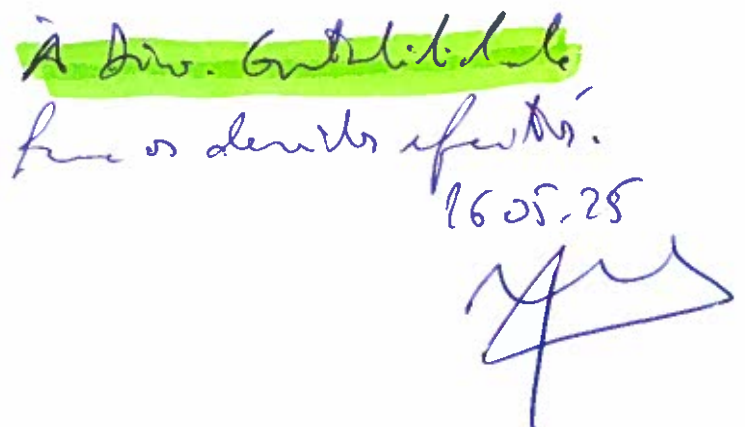 À Div. Contabilidade
para os devidos efeitos.
16.05.25